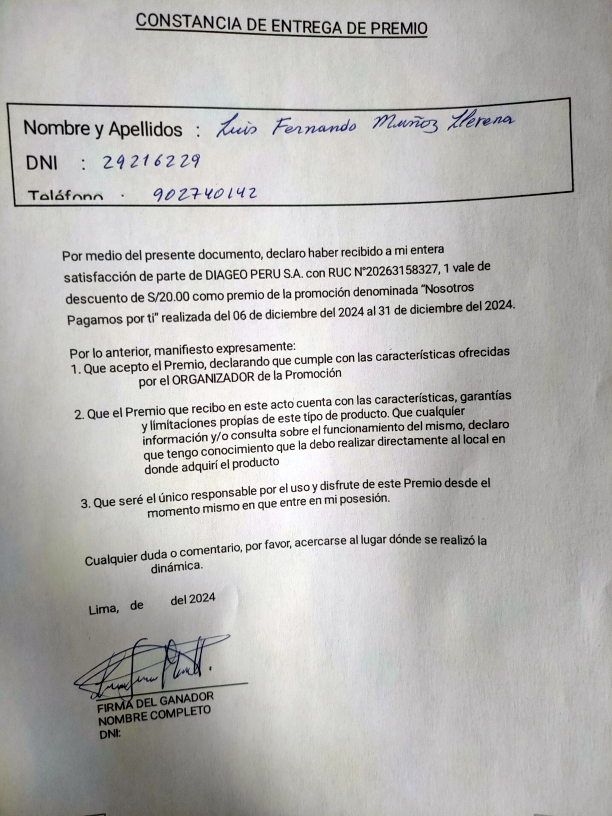 CONSTANCIA DE ENTREGA DE PREMIO
Nombre y Apellidos : Luis Fernando Muñoz Llerena
DNI : 29216229
Teléfono : 902740142
Por medio del presente documento, declaro haber recibido a mi entera
satisfacción de parte de DIAGEO PERU S.A. con RUC N°20263158327, 1 vale de
descuento de S/20.00 como premio de la promoción denominada "Nosotros
Pagamos por ti" realizada del 06 de diciembre del 2024 al 31 de diciembre del 2024.
Por lo anterior, manifiesto expresamente:
1. Que acepto el Premio, declarando que cumple con las características ofrecidas
por el ORGANIZADOR de la Promoción
2. Que el Premio que recibo en este acto cuenta con las características, garantías
y limitaciones propias de este tipo de producto. Que cualquier
información y/o consulta sobre el funcionamiento del mismo, declaro
que tengo conocimiento que la debo realizar directamente al local en
donde adquirí el producto
3. Que seré el único responsable por el uso y disfrute de este Premio desde el
momento mismo en que entre en mi posesión.
Cualquier duda o comentario, por favor, acercarse al lugar dónde se realizó la
dinámica.
Lima, de del 2024
FIRMA DEL GANADOR
NOMBRE COMPLETO
DNI: